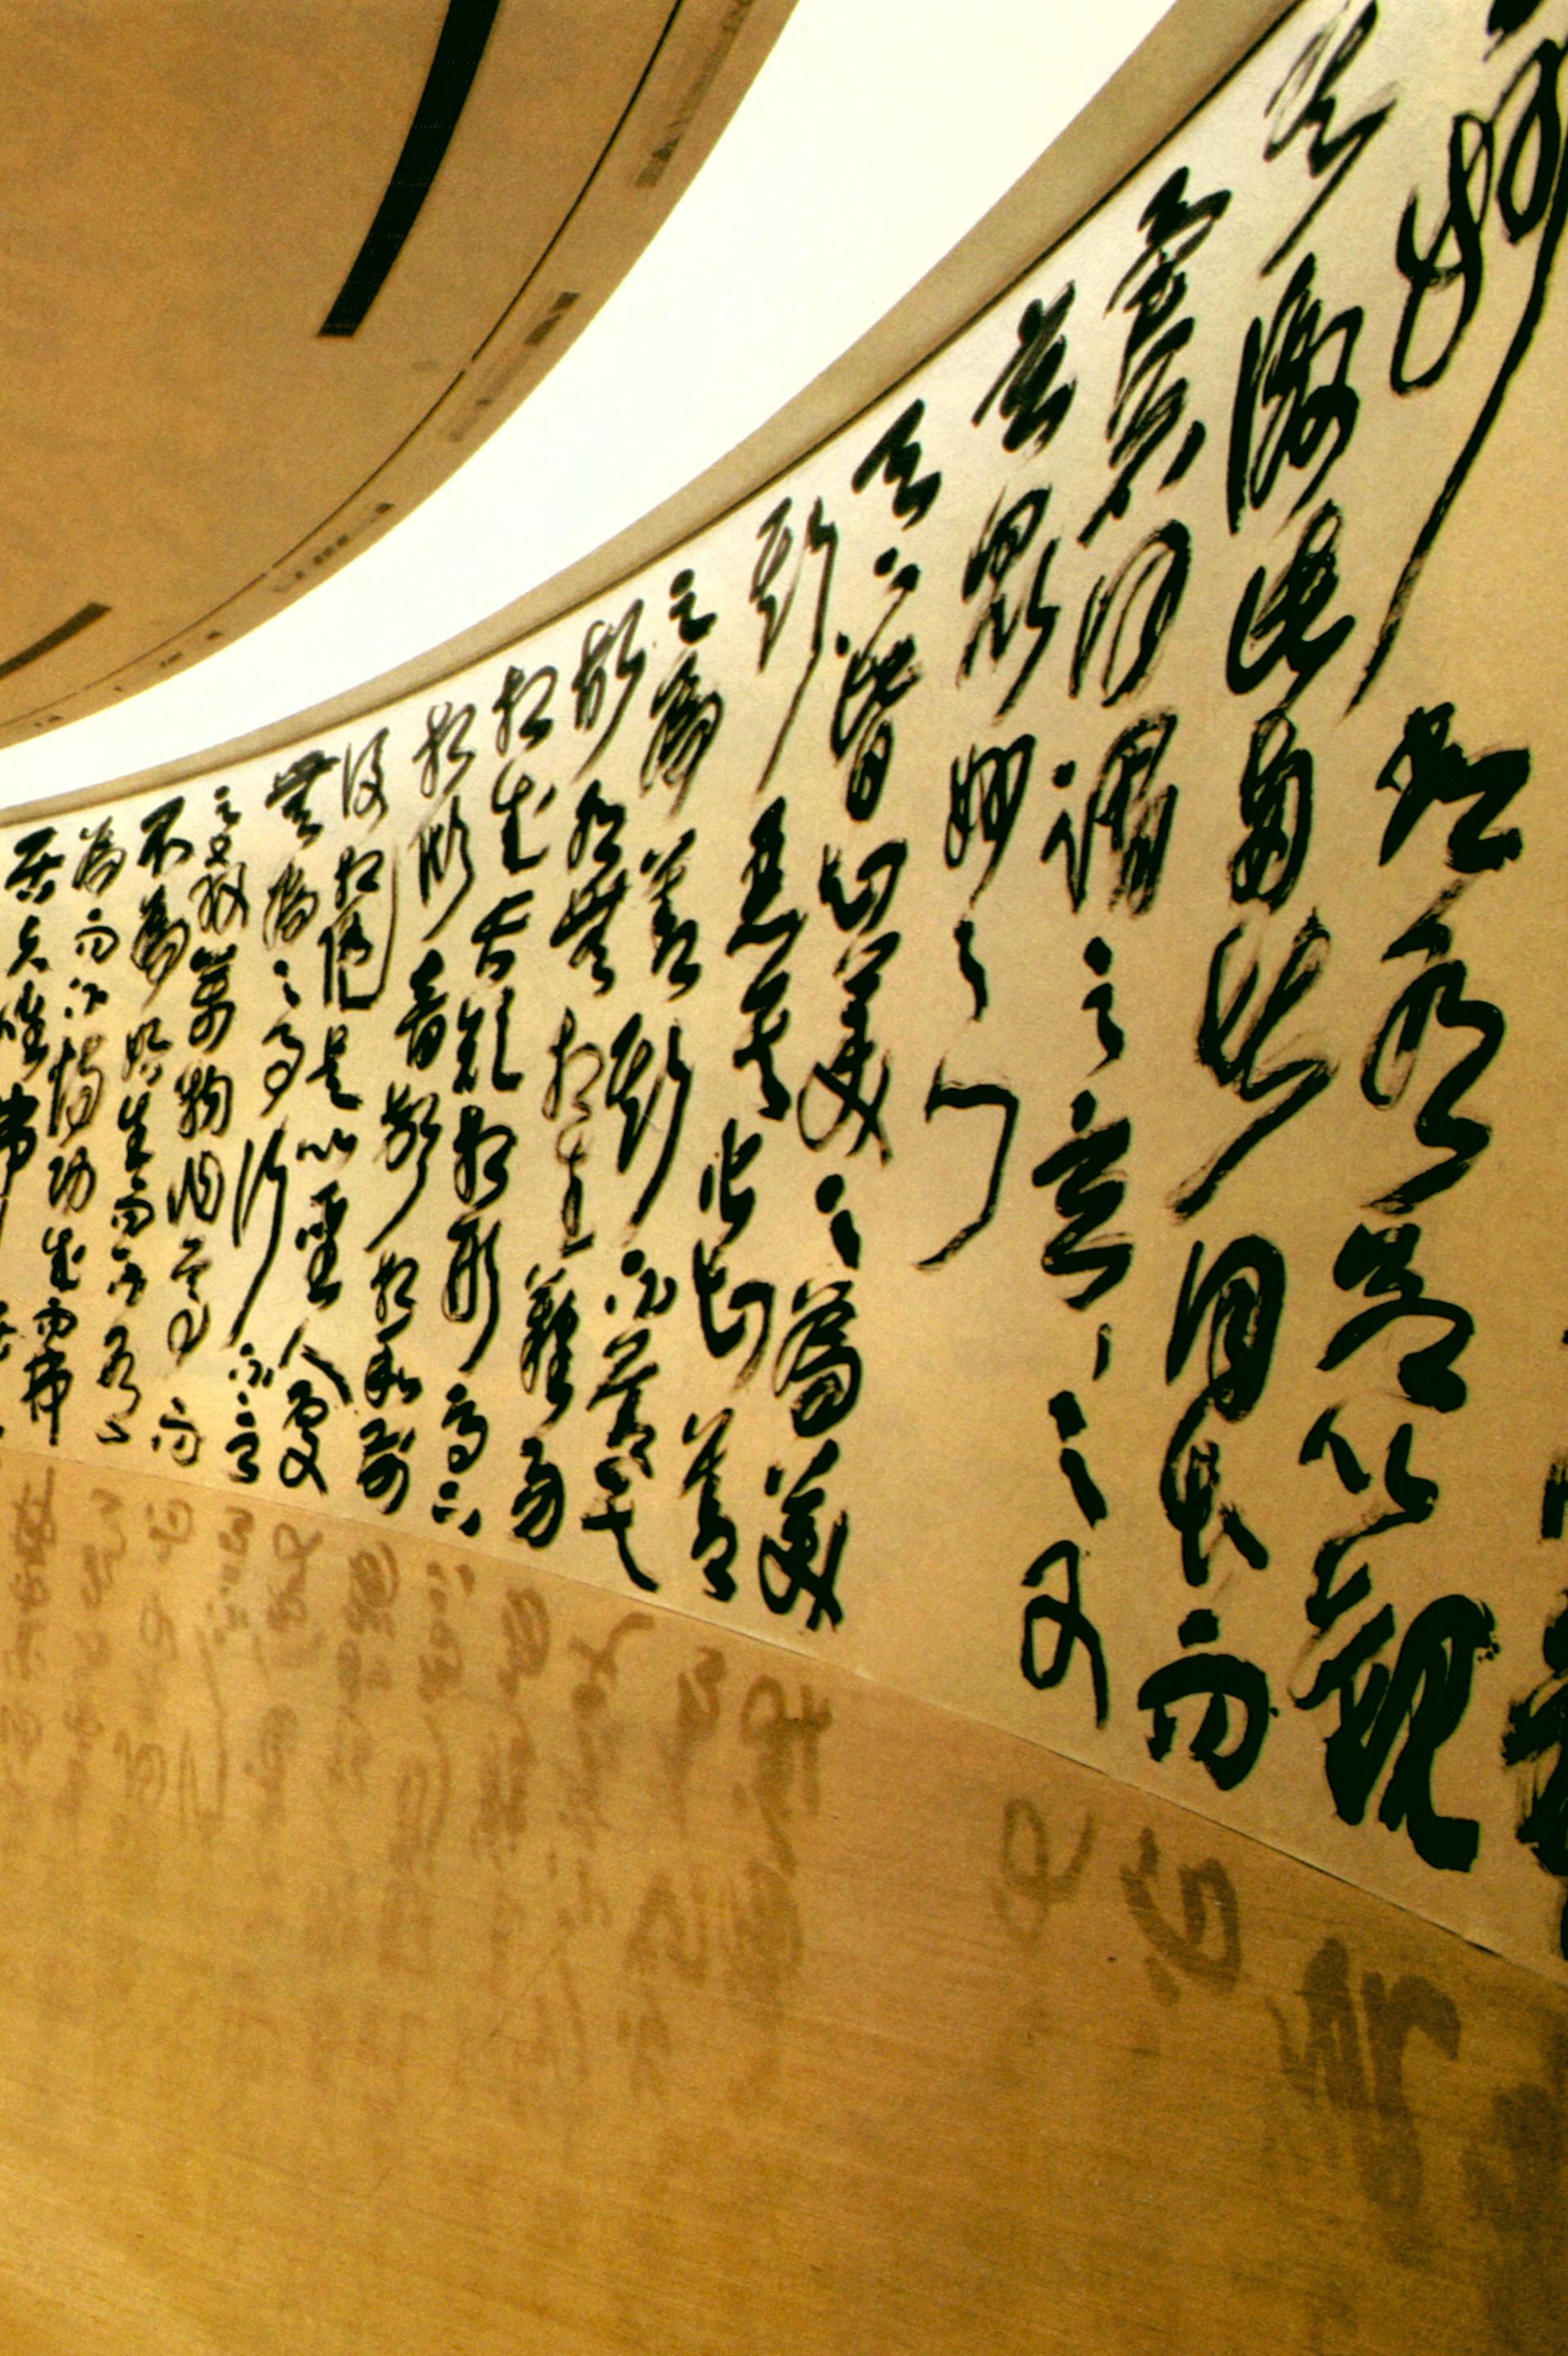 妙常有欲以觀
其徼此兩者同出而
異名同謂之玄玄之又
玄眾妙之門
天下皆知美之為美
斯惡已皆知善
之為善斯不善已
故有無相生難易
相成長短相形高下
相傾音聲相和前
後相隨是以聖人處
無為之事行不言
之教萬物作焉而
不為始生而不有
為而不恃功成而弗
居夫唯弗居